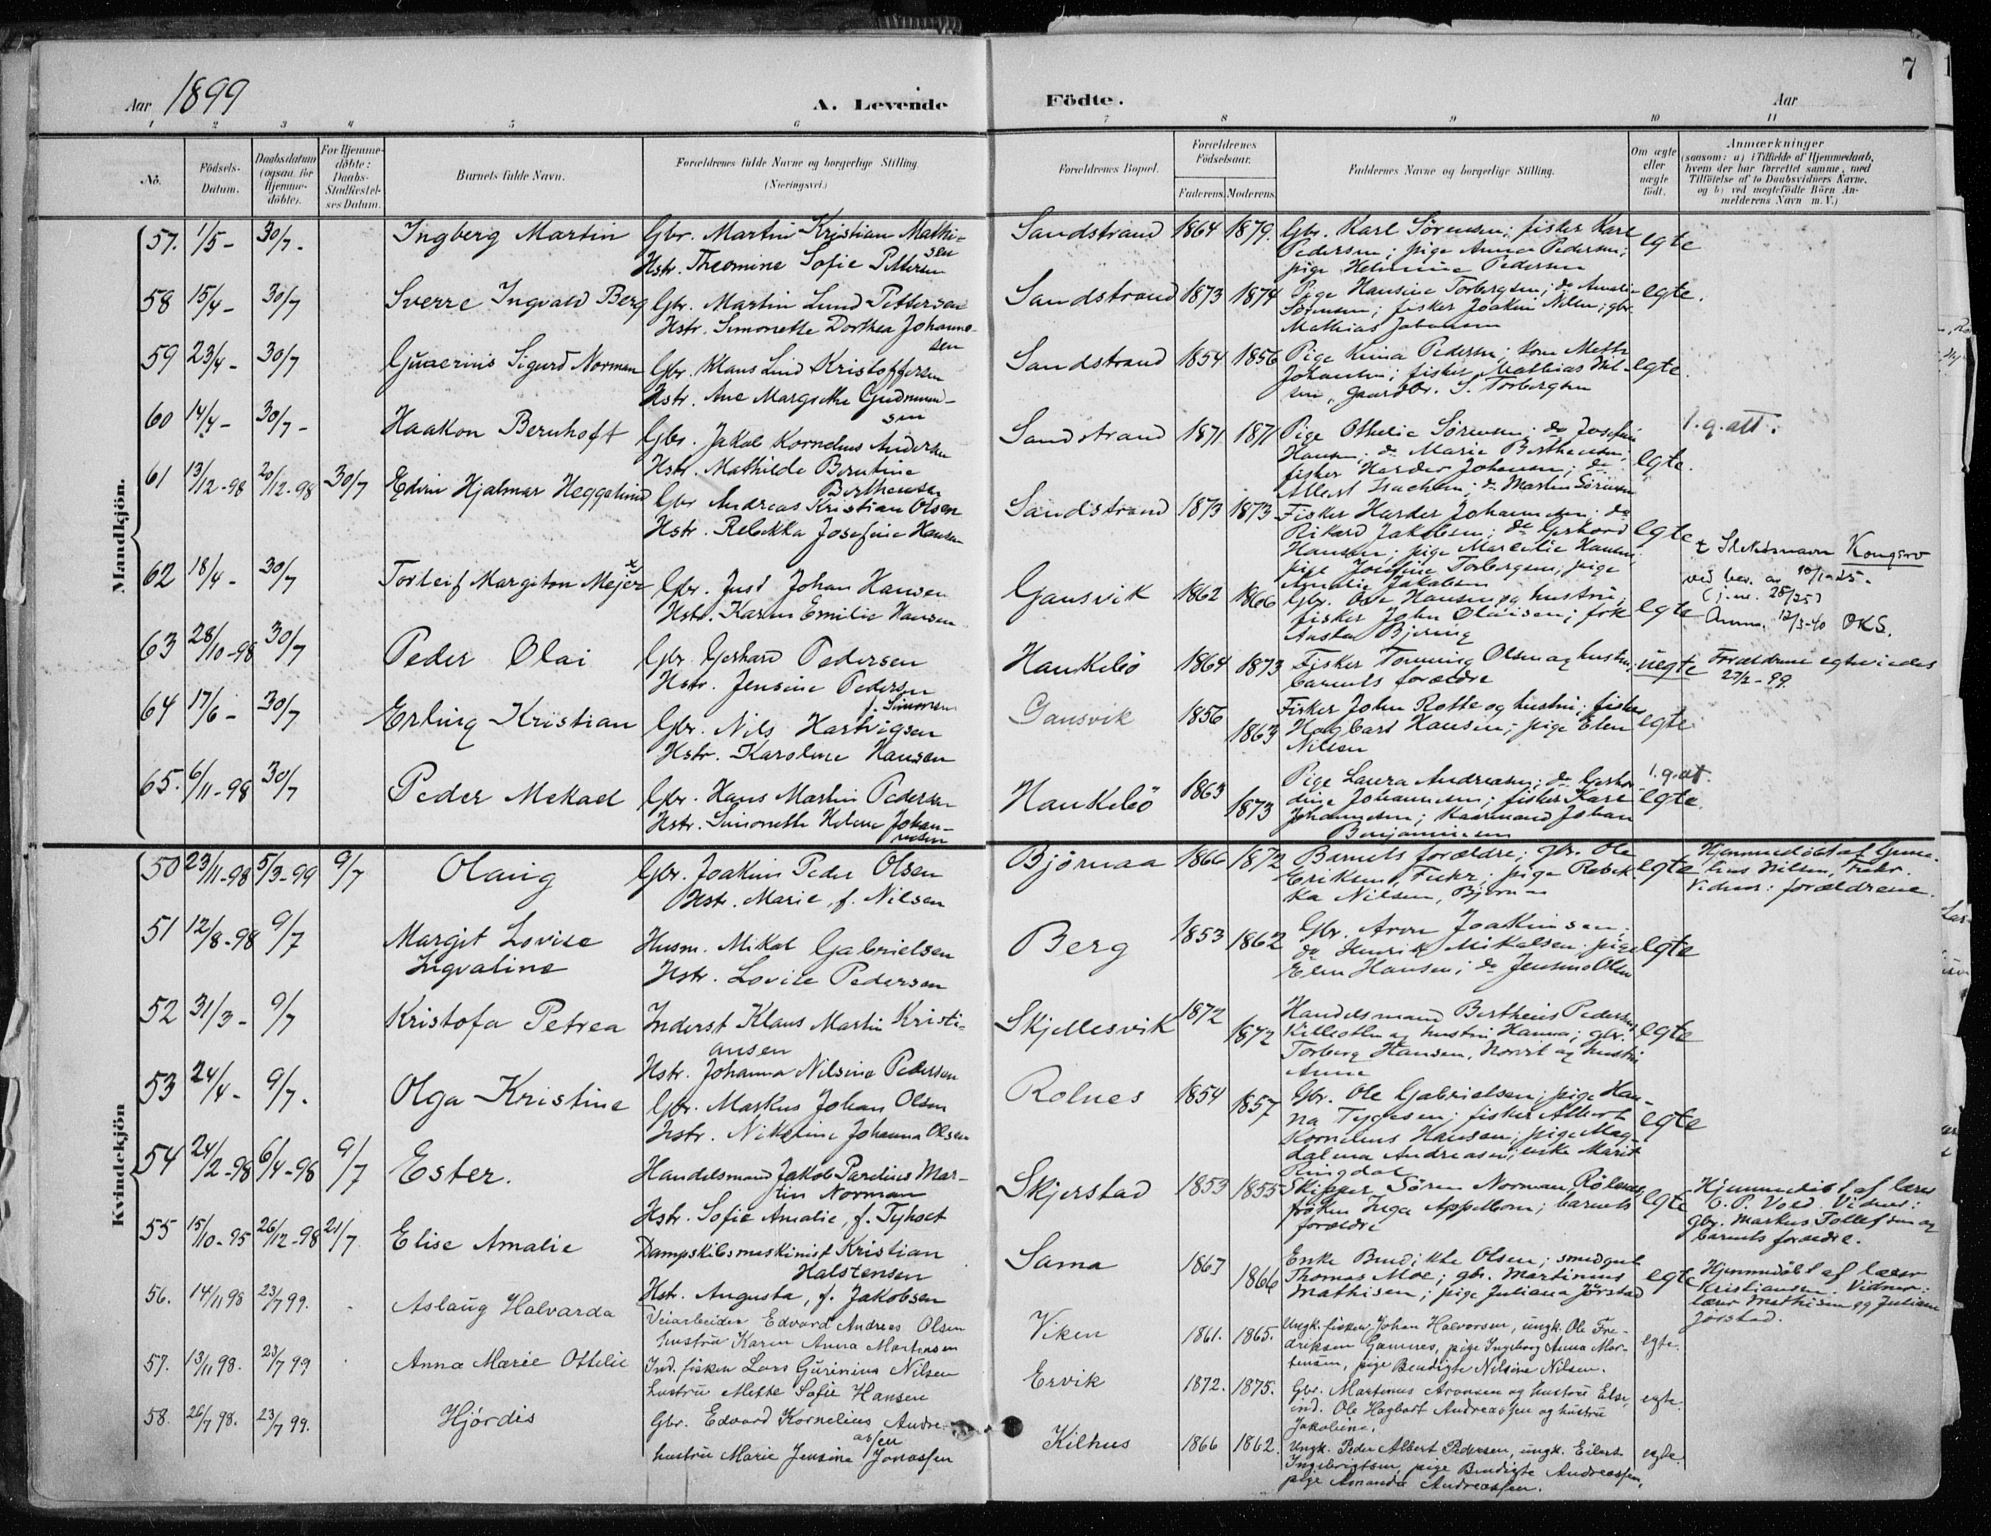 Aar 1899
A. Levende
Födte.
Aar
7
1 2 3 4 5 6 7 8 9 10 11
No.
Födsels-Datum.
Daabsdatum (ogsaa for Hjemme-döbte).
For Hjemme-döbte: Daabs-Stadfæstel-ses Datum.
Barnets fulde Navn.
Forældrenes fulde Navne og borgerlige Stilling. (Næringsvei.)
Forældrenes Bopæl.
Forældrenes Födselsaar.
Faderens. Moderens.
Faddernes Navne og borgerlige Stilling.
Om ægte eller uægte født.
Anmærkninger
(saasom: a) i Tilfælde af Hjemmedaab,
hvem der har forrettet samme, med
Tilföielse af to Daabsvidners Navne,
og b) ved uægtefödte Börn An-
melderens Navn m. V.)
Mandkjön.
57. 1/5 - 30/7 - Ingberg Martin Gbr. Martin Kristian Mathi- Sandstrand 1864 1879. Gbr. Karl Sørensen; fisker Karl egte
sen Pedersen; pige Anna Pedersen;
Hstr. Theomine Sofie Pettersen pige Helmine Pedersen
58 15/4 - 30/7 Sverre Ingvald Berg Gbr. Martin Lund Pettersen Sandstrand 1873 1874 Pige Hansine Torbergsen; do Amalie egte.
Hstr. Simonette Dorthea Johanne- Sørensen; fisker Joakim Nilsen; gbr.
sen Mathias Johansen
59 23/4 - 30/7 Sigurd Norman Gbr. Klaus Lind Kristoffersen Sandstrand 1854 1856 Pige Pedersen; kone Mette egte.
Hstr. Ane Margrethe Gudmund- Johansen; fisker Mathias Nil-
sen sen, gaardbr. S. Torbergsen
60 14/4 - 30/7 - Haakon Bernhoft Gbr. Jakob Kornelius Andersen Sandstrand 1871 1871 Pige Othelie Sørensen; do Josefine egte. 1. q. att.
Hstr. Mathilde Berntine Hansen; do Marie Berthensen;
Berthensen fisker Harder Johansen; do
Albert Isachsen; do Martin Sørensen
61 13/12-98 20/12-98 30/7 Edvin Hjalmar Heggelund Gbr Andreas Kristian Olsen Sandstrand 1873 1873 Fisker Harder Johannesen; do egte
Hstr. Rebekka Josefine Hansen Rikard Jakobsen; do Gerhard
Hansen; pige Marelie Hansen;
pige Josefine Torbergsen; pige
Amalie Jakobsen
62 18/4 - 30/7 Torleif Margiton Mejer x Gbr. Just Johan Hansen Gausvik 1862 1866 Gbr. Ole Hansen og hustru; egte
Hstr. Karen Emilie Hansen fisker John Olaisen; frk
Bjering
Slektsnavn Kongsro
ved bev. av 10/1-25.
(j. nr. 28/25)
Anm. 12/3-40 OKS.
63 28/10-98 30/7 Peder Olai Gbr Gerhard Pedersen Haukebö 1864 1873 Fisker Tønning Olsen og hustru; uegte Forældrene egteviedes
Hstr. Jensine Pedersen barnets forældre 27/2-99.
f. Simonsen
64 17/6 - 30/7 Erling Kristian Gbr. Nils Hartvigsen Gausvik 1856 1863 Fisker John Rotte og hustru; fisker egte
Hstr. Karoline Hansen Hagbart Hansen; pige Elen
Nilsen
65. 6/11-98 30/7 Peder Mekael Gbr. Hans Martin Pedersen Haukebö 1863 1873 Pige Laura Andreasen; do Gerhar- egte. 1. q. att.
Hstr. Simonette Helene Johan- dine Johannesen; fisker Karl
nesen Johannesen; Kaarmand Johan
Benjaminsen
Kvindekjön
50 23/11-98 5/3-99 9/7 Olaug Gbr. Joakim Peder Olsen Bjørnaa 1866 1872 Barnets forældre; gbr. Ole egte Hjemmedøbt af
Hstr. Marie, f. Nilsen Eriksen, ; pige Rebek- Nilsen,
ka Nilsen, Bjørn - Vidner: forældrene.
51 12/8-98 9/7 Margit Lovise Husm. Mikal Gabrielsen Berg 1853 1862 Gbr. Aron Joakimsen; egte
Ingvaline Hstr. Lovise Pedersen do Henrik Mikalsen; pige
Elen Hansen; do Jensine Olsen
52 31/3 - 9/7 Kristofa Petrea Inderst Klaus Martin Kristi- Skjellesvik 1872 1872 Handelsmand Bertheus Pedersen, egte
ansen og hustru Hanna; gbr.
Hstr. Johanna Nilsine Pedersen Torberg Hansen, og hustru
Anne
53 24/4 - 9/7. Olga Kristine Gbr. Markus Johan Olsen Rolnes 1854 1857 Gbr. Ole Gabrielsen; pige Han- egte
Hstr. Nikoline Johanna Olsen na Tygesen; fisker Albert
Kornelius Hansen; pige Mag-
dalena Andreasen; enke Marit
Ringdal
54 24/2-98 6/4-98 9/7 Ester. Handelsmand Jakob Parelius Mar- Skjerstad 1853 1855 Skipper Sören Norman, Rölnes; egte Hjemmedøbt af lærer
tin Norman frøken Inga Appelbom; barnets O. P. Vold. Vidner:
Hstr. Sofie Amalie, f. Tyholt forældre gbr. Markus Tollefsen og
barnets forældre.
55 15/10-95 26/12-98 21/7 Elise Amalie Dampskibsmaskinist Kristian Sama 1867 1866 Enke Bendikte Olsen; smedgut egte Hjemmedøbt af lærer
Halstensen Thomas Moe; gbr. Martinius Kristiansen. Vidner:
Hstr. Augusta, f. Jakobsen Mathisen; pige Juliana Jørstad lærer Mathisen og Juliane
Jørstad.
56. 14/11 98 23/7 99. Aslaug Halvarda Veiarbeider Edvard Andreas Olsen Viken 1861. 1865. Ungk. fisker Johan Halvorsen, ungk. Ole Fre- egte.
hustru Karen Anna Mortensen driksen Gamnes, pige Ingeborg Anna Mor-
tensen, pige Bendigte Nilsine Nilsen.
57. 13/11 98. 23/7 99 Anna Marie Ottilie Ind. fisker Lars Gurinius Nilsen Ervik 1872. 1875. Gbr. Martinus Aronsen og hustru Else, egte.
hustru Mette Sofie Hansen ind. Ole Hagbart Andreassen og hustru
Jakobine.
58. 26/7 98. 23/7 99. Hjørdis Gbr. Edvard Kornelius Andre- Kilhus 1866 1862. Ungk. Peder Albert Pedersen, ungk. Eilert egte.
assen Ingebrigtsen, pige Bendigte Andreassen,
hustru Marie Jensine Jonassen pige Amanda Andreassen.